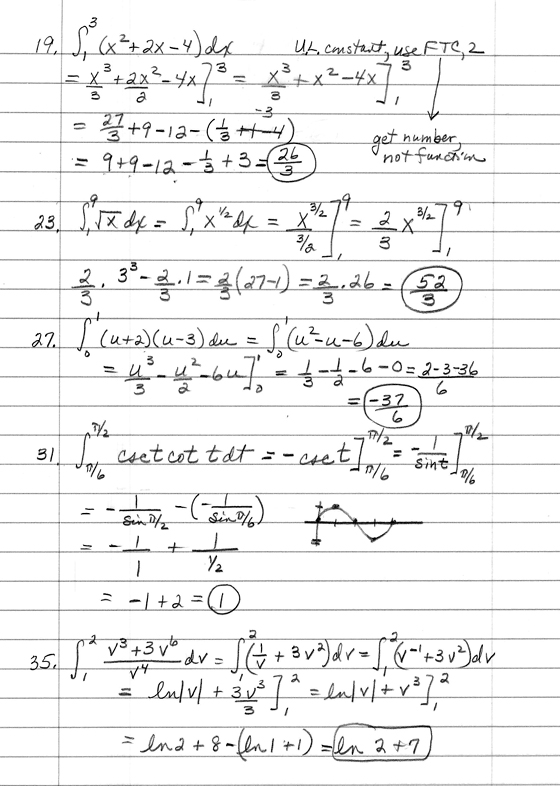 19. ∫₁³ (x² + 2x - 4) dx   U.L. constant, use FTC, 2
= x³/3 + 2x²/2 - 4x ]₁³ = x³/3 + x² - 4x ]₁³
= 27/3 + 9 - 12 - (1/3 + 1 - 4) -3   get number,
not function
= 9 + 9 - 12 - 1/3 + 3 = 26/3
23. ∫₁⁹ √x dx = ∫₁⁹ x^(1/2) dx = x^(3/2)/(3/2) ]₁⁹ = 2/3 x^(3/2) ]₁⁹
2/3 · 3³ - 2/3 · 1 = 2/3 (27-1) = 2/3 · 26 = 52/3
27. ∫₀¹ (u+2)(u-3) du = ∫₀¹ (u² - u - 6) du
= u³/3 - u²/2 - 6u ]₀¹ = 1/3 - 1/2 - 6 - 0 = (2-3-36)/6
= -37/6
31. ∫_(π/6)^(π/2) csc t cot t dt = - csc t ]_(π/6)^(π/2) = - 1/sin t ]_(π/6)^(π/2)
= - 1/sin π/2 - (- 1/sin π/6)
= - 1/1 + 1/(1/2)
= -1 + 2 = 1
35. ∫₁² (v³ + 3v⁶)/v⁴ dv = ∫₁² (1/v + 3v²) dv = ∫₁² (v⁻¹ + 3v²) dv
= ln|v| + 3v³/3 ]₁² = ln|v| + v³ ]₁²
= ln 2 + 8 - (ln 1 + 1) = ln 2 + 7